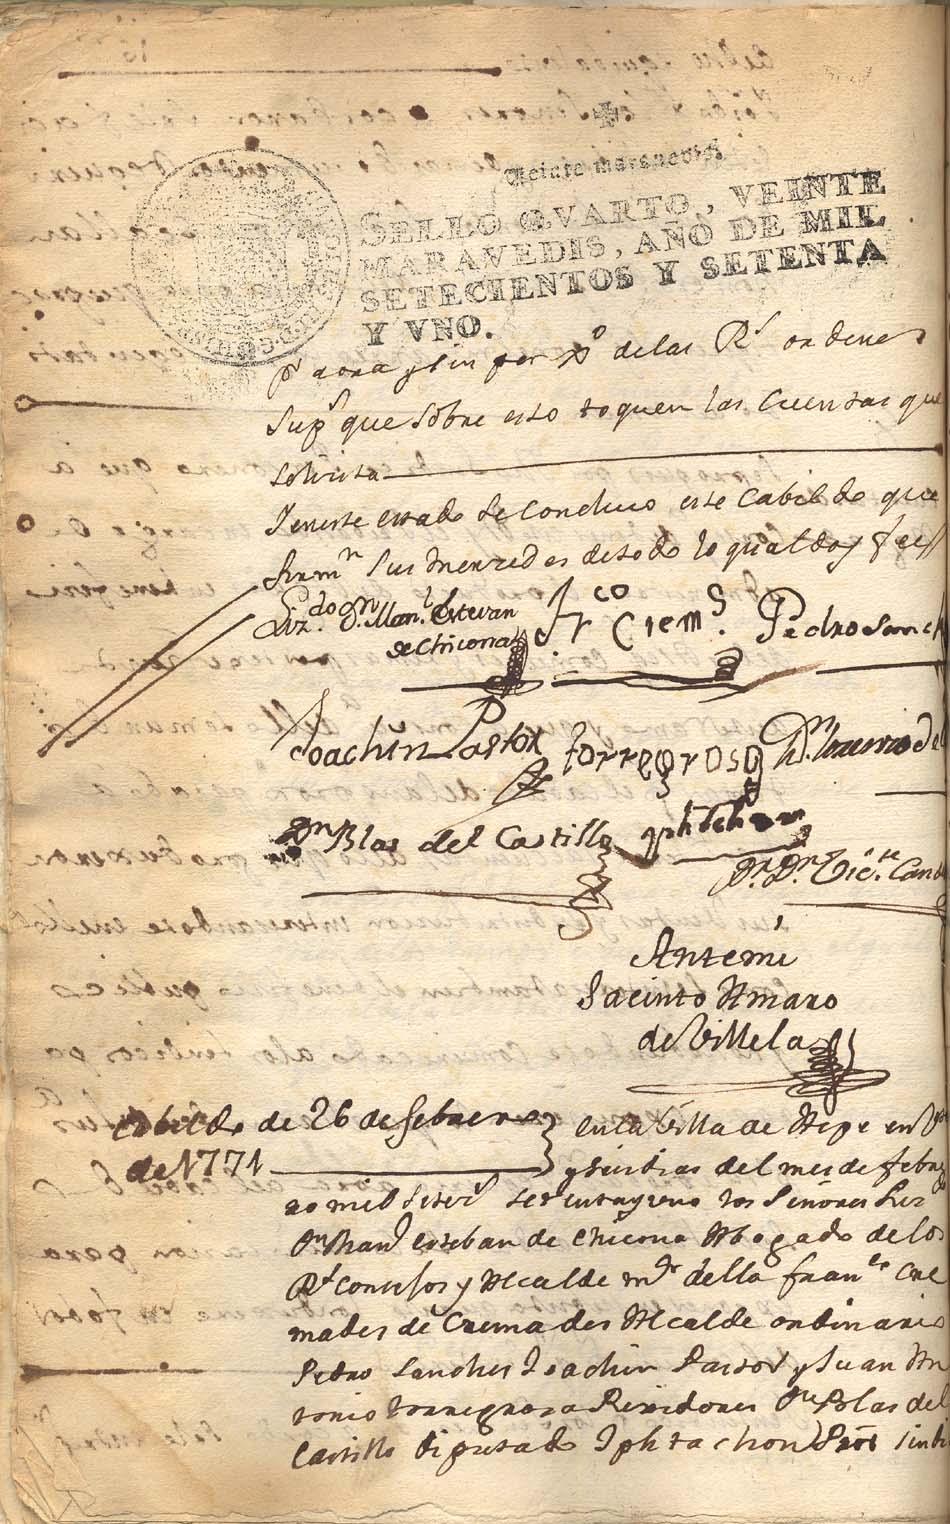 Veinte maravedis.
SELLO QVARTO, VEINTE
MARAVEDIS, AÑO DE MIL
SETECIENTOS Y SETENTA
Y VNO.
pr aora y sin per xo delas Rs ordenes
Sups que sobre esto toquen las Cuentas que
solicita
Yeneste estado se Concluio este Cabildo que
firmn sus mercedes detodo lo qual doy fee
Lizdo Dn Manl Estevan
de Chicona
Frco Crems
Pedro Sanch
Joachin Pastor
torregrosa
Dn Blas del Castillo
Dr Dn Victe Cand
Antemi
Jacinto Amaro
de Villela
Cabildo de 26 de febrero
de 1771
enla Villa de Aspe en Vte
y seis dias del mes de febre
ro mil setecs setenta y uno los Señores Liz
Dn Manl esteban de Chicona Abogado de los
Rs Consejos y Alcalde mor della franco Cre
mades de Cremades Alcalde ordinario
Pedro Sanches Joachin Pastor y Juan An
tonio torregrosa Rexidores Dn Blas del
Castillo diputado Jph tachon Pror sindi